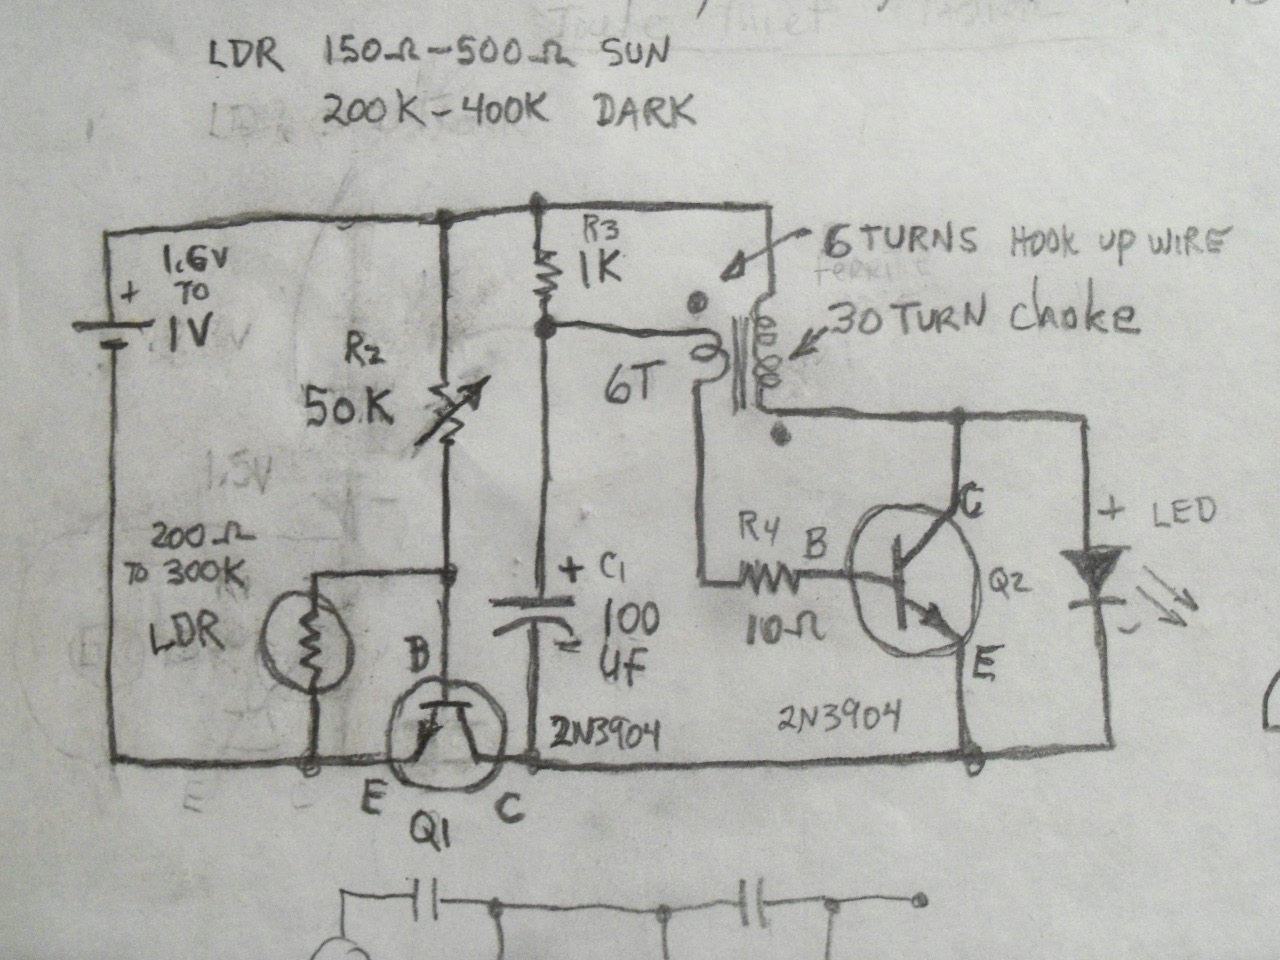 Joule thief
LDR 150Ω-500Ω SUN
200K-400K DARK
1.6V
TO
1V
+
R3
1K
6 TURNS HOOK UP WIRE
30 TURN choke
R2
50K
6T
1.5V
200Ω
TO 300K
LDR
+ C1
100
UF
R4
10Ω
B
C
Q2
E
+ LED
-
B
2N3904
2N3904
E
C
Q1